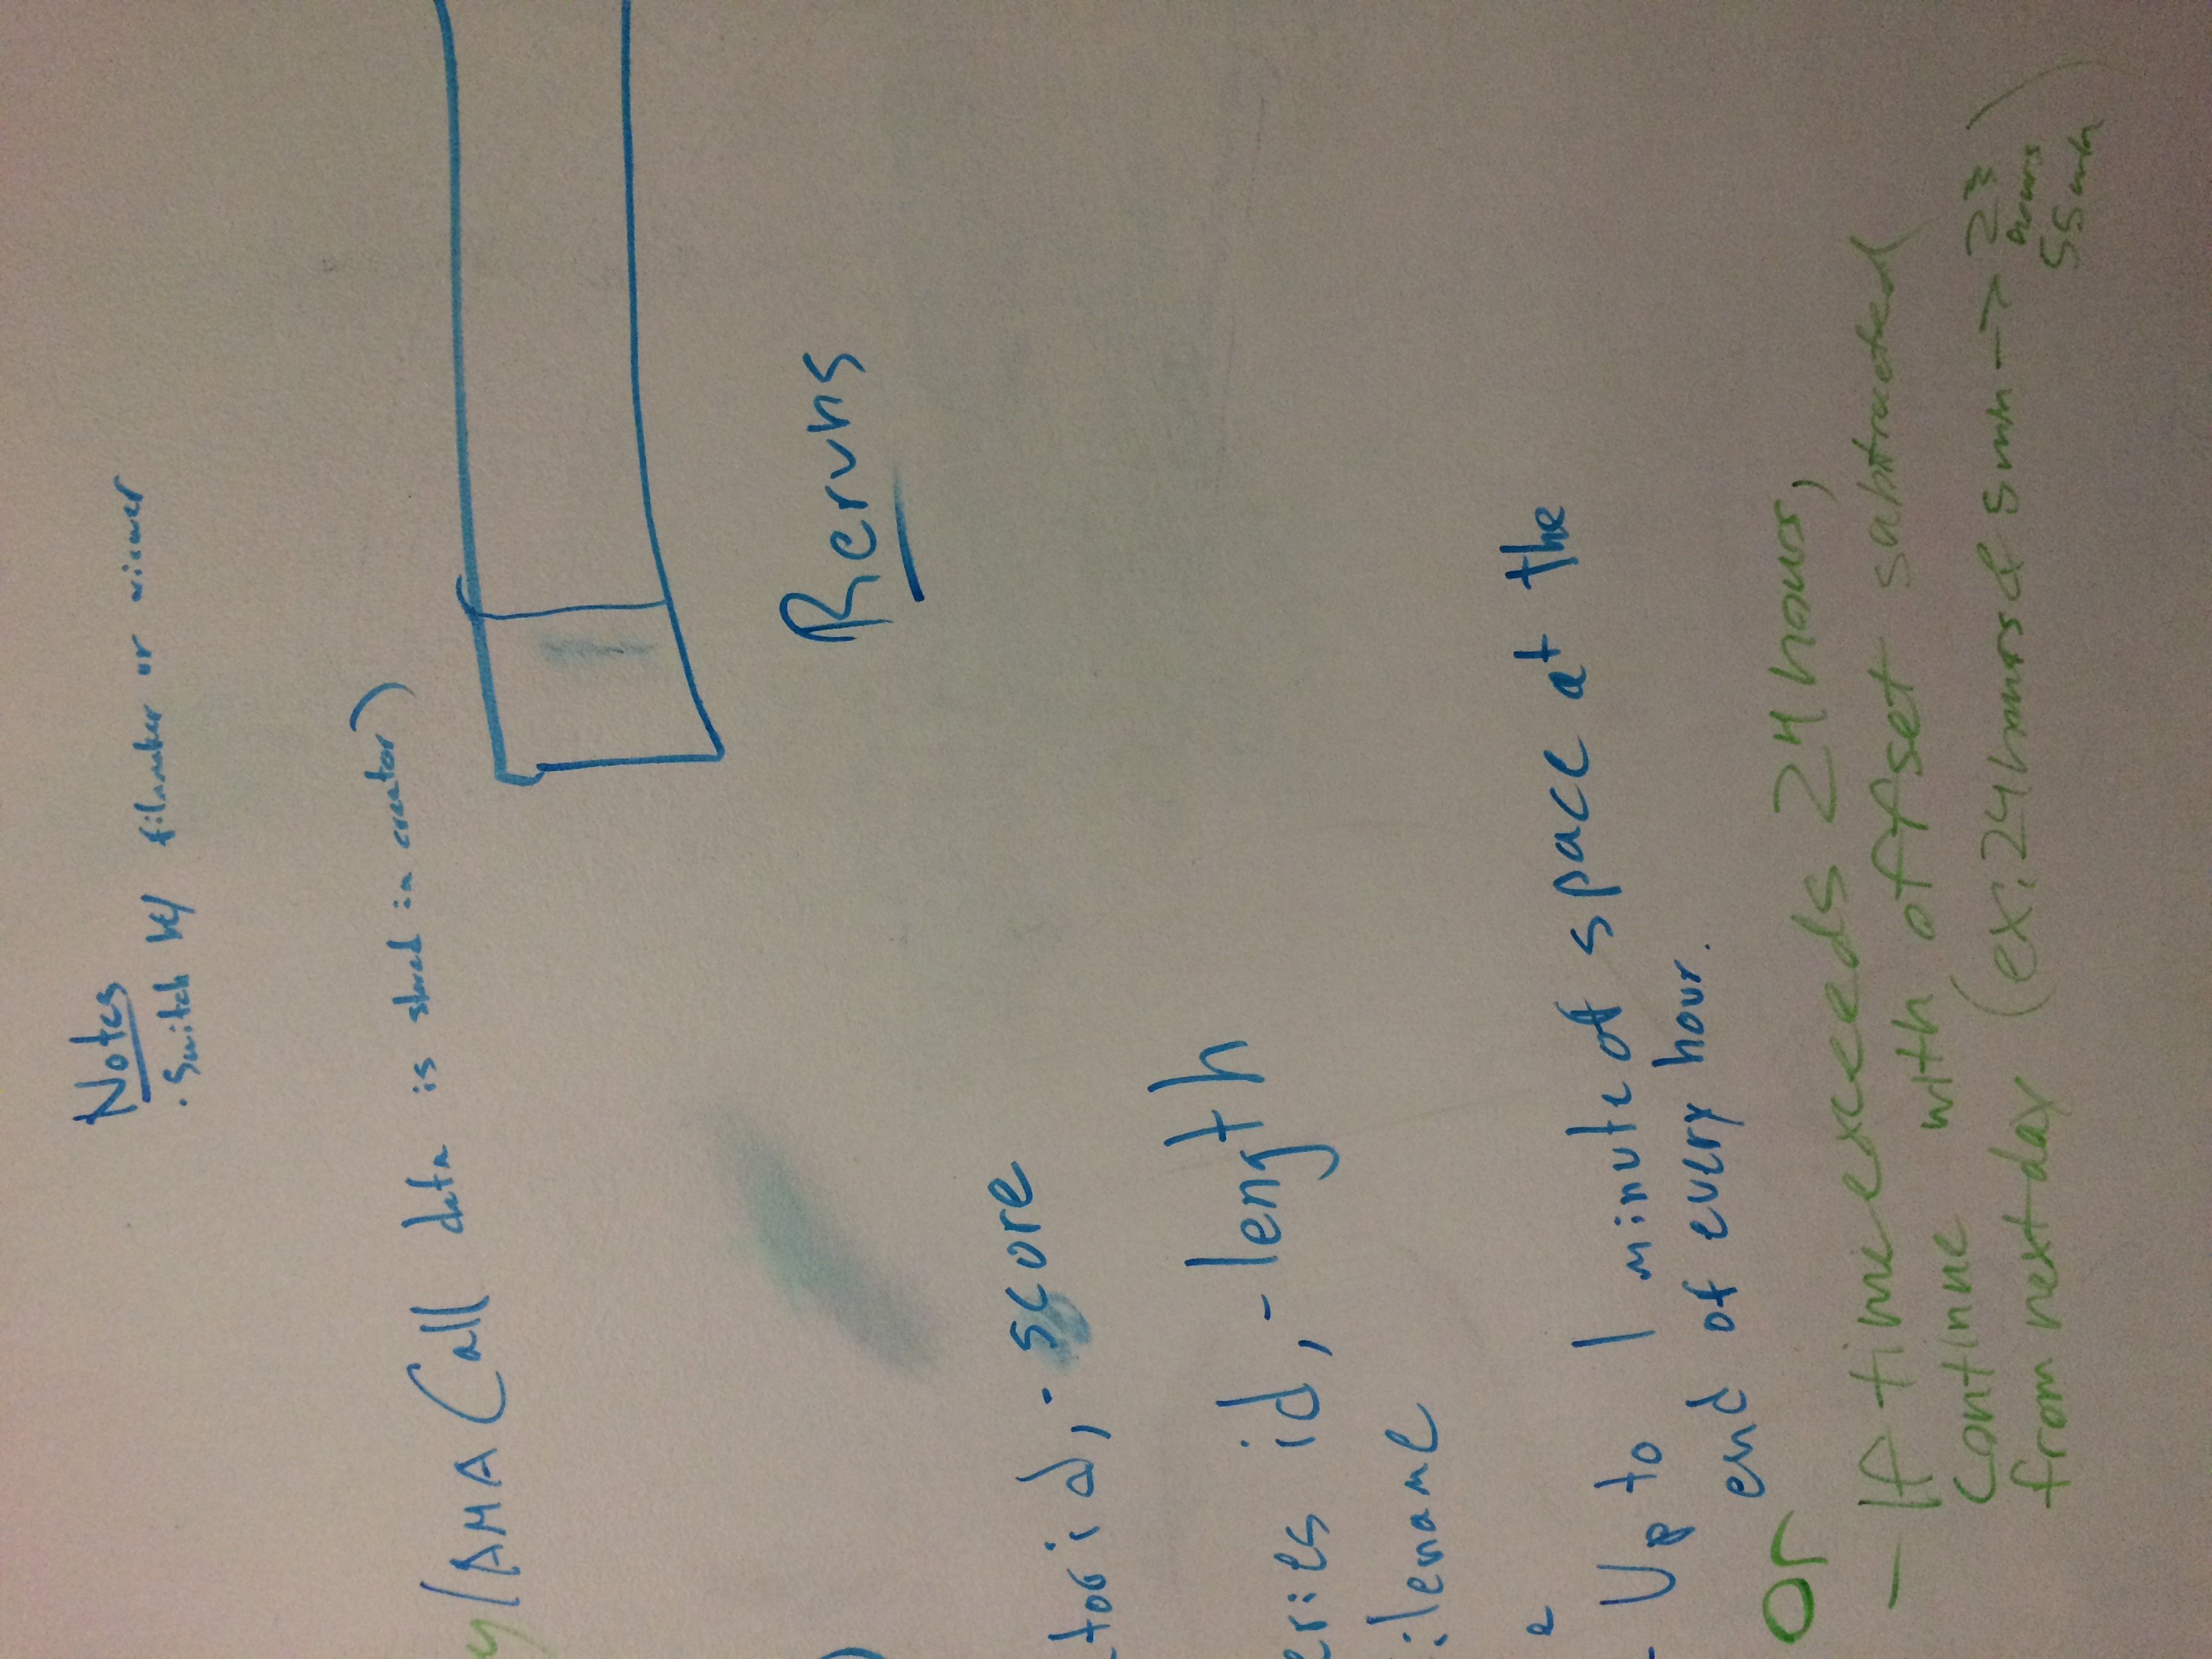 Notes
· Switch b/w filmaker or viewer
y/AMA (all data is stored in creator)
Reruns
tor id, - score
eries id, - length
ilename
e
- Up to 1 minute of space at the
end of every hour.
Or
- If time exceeds 24 hours,
continue with offset subtracted
from next day (ex: 24 hours & 5 min -> 23
hours
55 min)